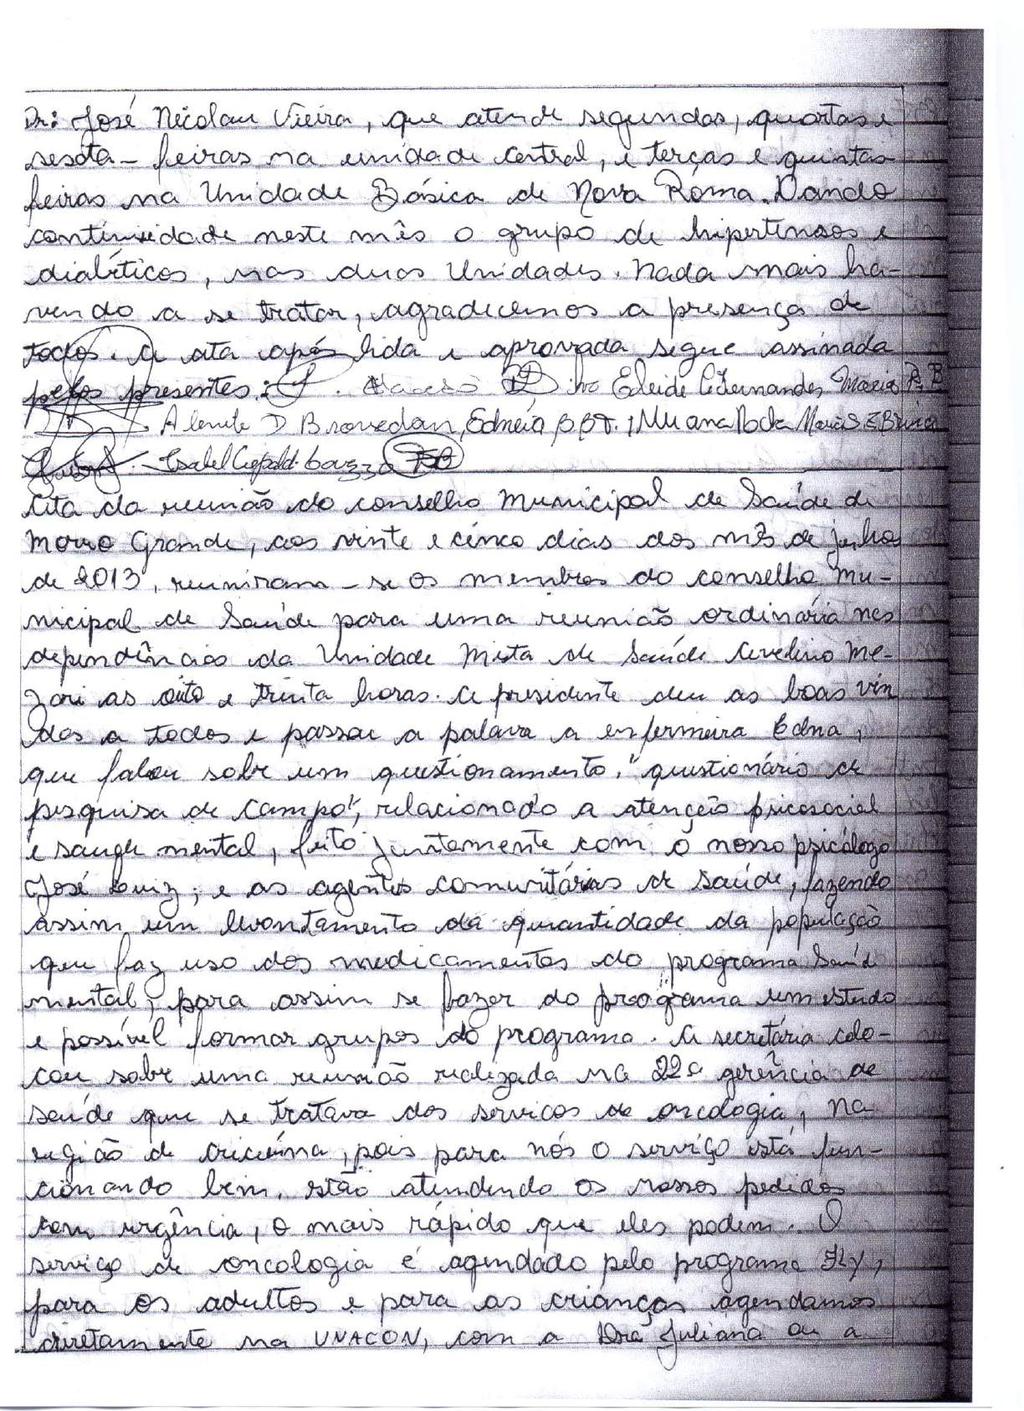 Dr: José Nicolau Vieira, que atende segundas, quartas e
sesxta-feiras na unidade central, e terças e quintas
feiras na Unidade Básica de Nova Roma. Dando
continuidade neste mês o grupo de hipertensos e
diabéticos, nas duas Unidades. Nada mais ha-
vendo a se tratar, agradecemos a presença de
todos. A ata após lida e aprovada segue assinada
pelos presentes: Fernandes Maria P. B
D Brovedan, Edneia Maria S. E Bruna
Isabel
Ata da reunião do conselho Municipal de Saúde de
Morro Grande, aos vinte e cinco dias dos mês de junho
de 2013, reuniram-se os membros do conselho Mu-
nicipal de Saúde para uma reunião ordinária nas
dependências da Unidade Mista de Saúde Avelino Me-
zari as oito e trinta horas. A presidente deu as boas vin
das a todos e passou a palava a enfermeira Edna,
que falou sobre um questionamento, "questionário de
pesquisa de campo", relacionado a atenção psicosocial
e saude mental, feito juntamente com o nosso psicólogo
José Luiz, e as agentes comunitárias de saúde, fazendo
assim um levantamento da quantidade da população
que faz uso dos medicamentos do programa Saúde
mental, para assim se fazer do programa um estudo
e possível formar grupos do programa. A secretária colo-
cou sobre uma reunião realizada na 22ª gerência de
saúde que se tratava dos serviços de oncologia, na
região de criciúma, pois para nós o serviço está fun-
cionando bem, estão atendendo os nossos pedidos
com urgência, o mais rápido que eles podem. O
serviço de oncologia é agendado pelo programa
para os adultos e para as crianças agendamos
diretamente na UNACON, com a Dra Juliana ou a